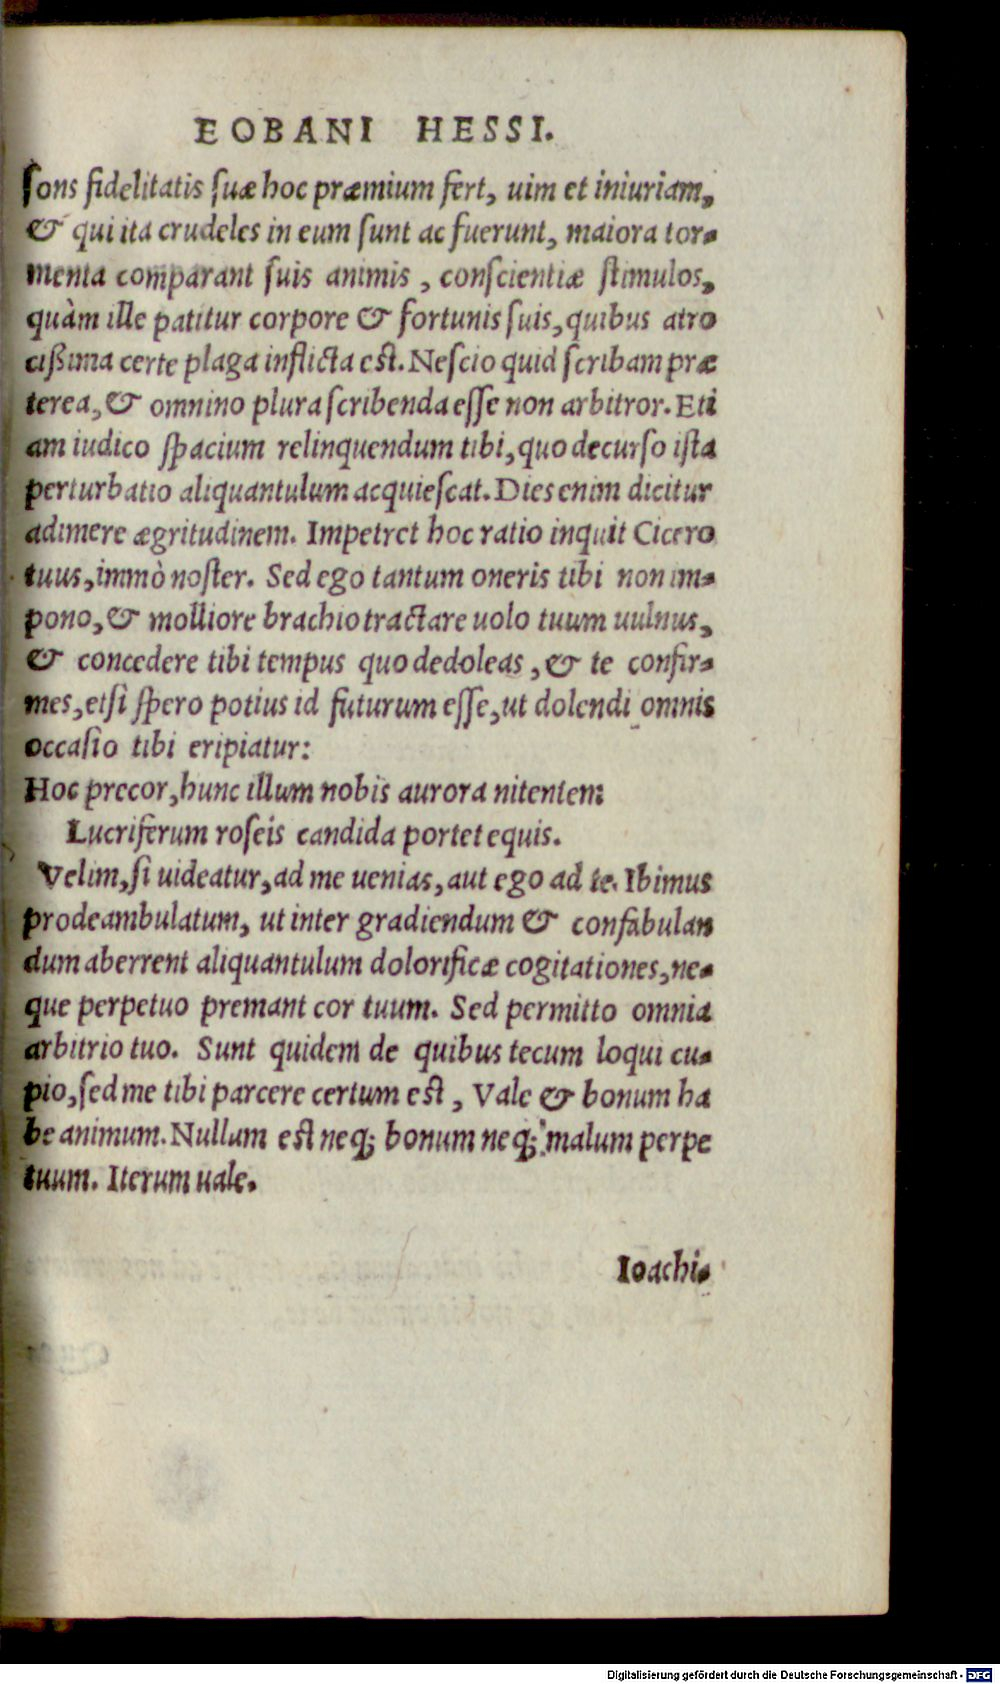 EOBANI HESSI.
ſons fidelitatis ſuæ hoc præmium fert, uim et iniuriam,
& qui ita crudeles in eum ſunt ac fuerunt, maiora tor-
menta comparant ſuis animis , conſcientiæ ſtimulos,
quàm ille patitur corpore & fortunis ſuis, quibus atro
cißima certe plaga inflicta eſt. Neſcio quid ſcribam præ
terea, & omnino plura ſcribenda eſſe non arbitror. Eti
am iudico ſpacium relinquendum tibi, quo decurſo iſta
perturbatio aliquantulum acquieſcat. Dies enim dicitur
adimere ægritudinem. Impetret hoc ratio inquit Cicero
tuus, immò noſter. Sed ego tantum oneris tibi non im-
pono, & molliore brachio tractare uolo tuum uulnus,
& concedere tibi tempus quo dedoleas , & te confir-
mes, etſi ſpero potius id futurum eſſe, ut dolendi omnis
occaſio tibi eripiatur:
Hoc precor, hunc illum nobis aurora nitentem
Luciferum roſeis candida portet equis.
Velim, ſi uideatur, ad me uenias, aut ego ad te. Ibimus
prodeambulatum, ut inter gradiendum & confabulan
dum aberrent aliquantulum dolorificæ cogitationes, ne-
que perpetuo premant cor tuum. Sed permitto omnia
arbitrio tuo. Sunt quidem de quibus tecum loqui cu-
pio, ſed me tibi parcere certum eſt , Vale & bonum ha
be animum. Nullum eſt neq; bonum neq; malum perpe
tuum. Iterum uale.
Ioachi-
Digitalisierung gefördert durch die Deutsche Forschungsgemeinschaft - DFG